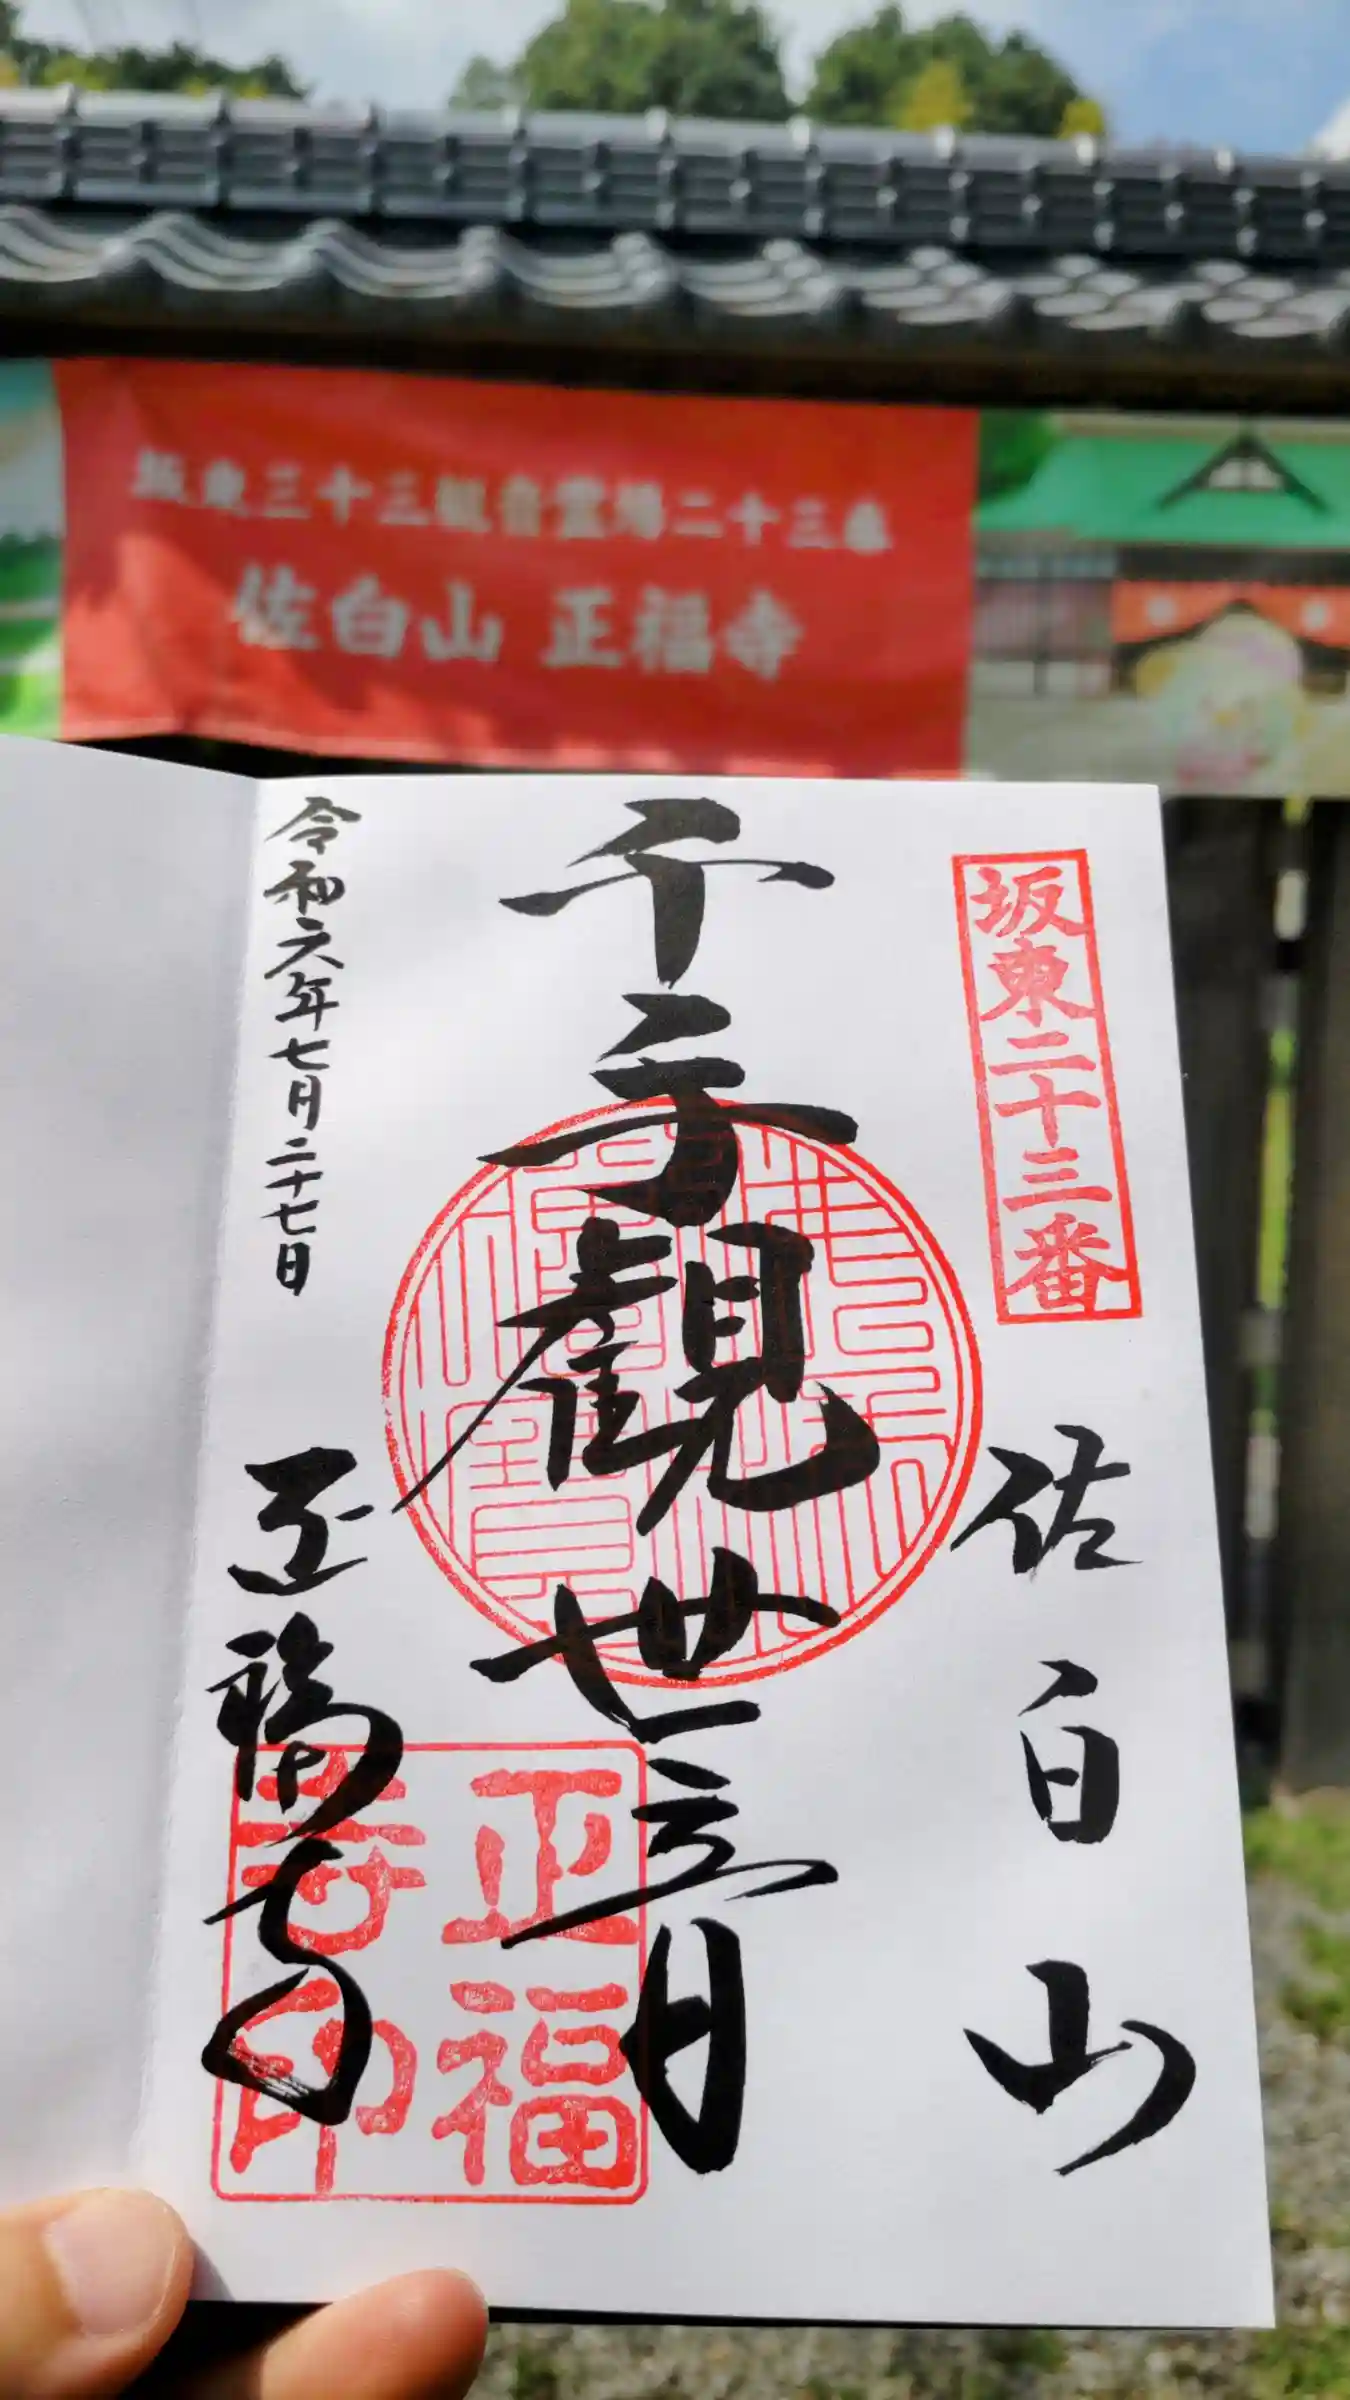 坂東三十三観音霊場二十三番
佐白山 正福寺
坂東二十三番
佐白山
千手観世音
正福寺
令和六年七月二十七日
正福
寺印